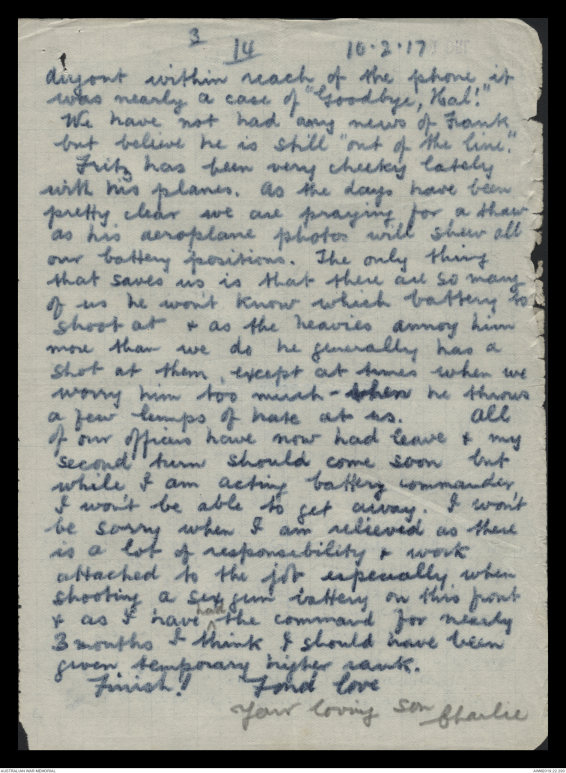 3
14 10.2.17
dugout within reach of the phone, it
was nearly a case of "Goodbye, Hal!"
We have not had any news of Frank
but believe he is still "out of the line."
Fritz has been very cheeky lately
with his planes. As the days have been
pretty clear we are praying for a thaw
as his aeroplane photos will shew all
our battery positions. The only thing
that saves us is that there are so many
of us he won't know which battery to
shoot at & as the heavies annoy him
more than we do he generally has a
shot at them, except at times when we
worry him too much - when he throws
a few lumps of hate at us. All
of our officers have now had leave & my
second turn should come soon but
while I am acting battery commander
I won't be able to get away. I won't
be sorry when I am relieved as there
is a lot of responsibility & work
attached to the job especially when
shooting a six gun battery on this front
& as I have had the command for nearly
3 months I think I should have been
given temporary higher rank.
Finish! Fond love
Your loving son Charlie
AUSTRALIAN WAR MEMORIAL